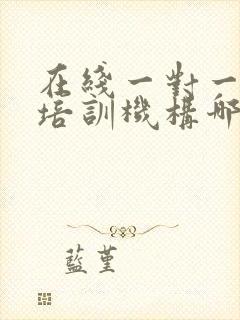 在綫一對一
培訓機構哪
藍堇